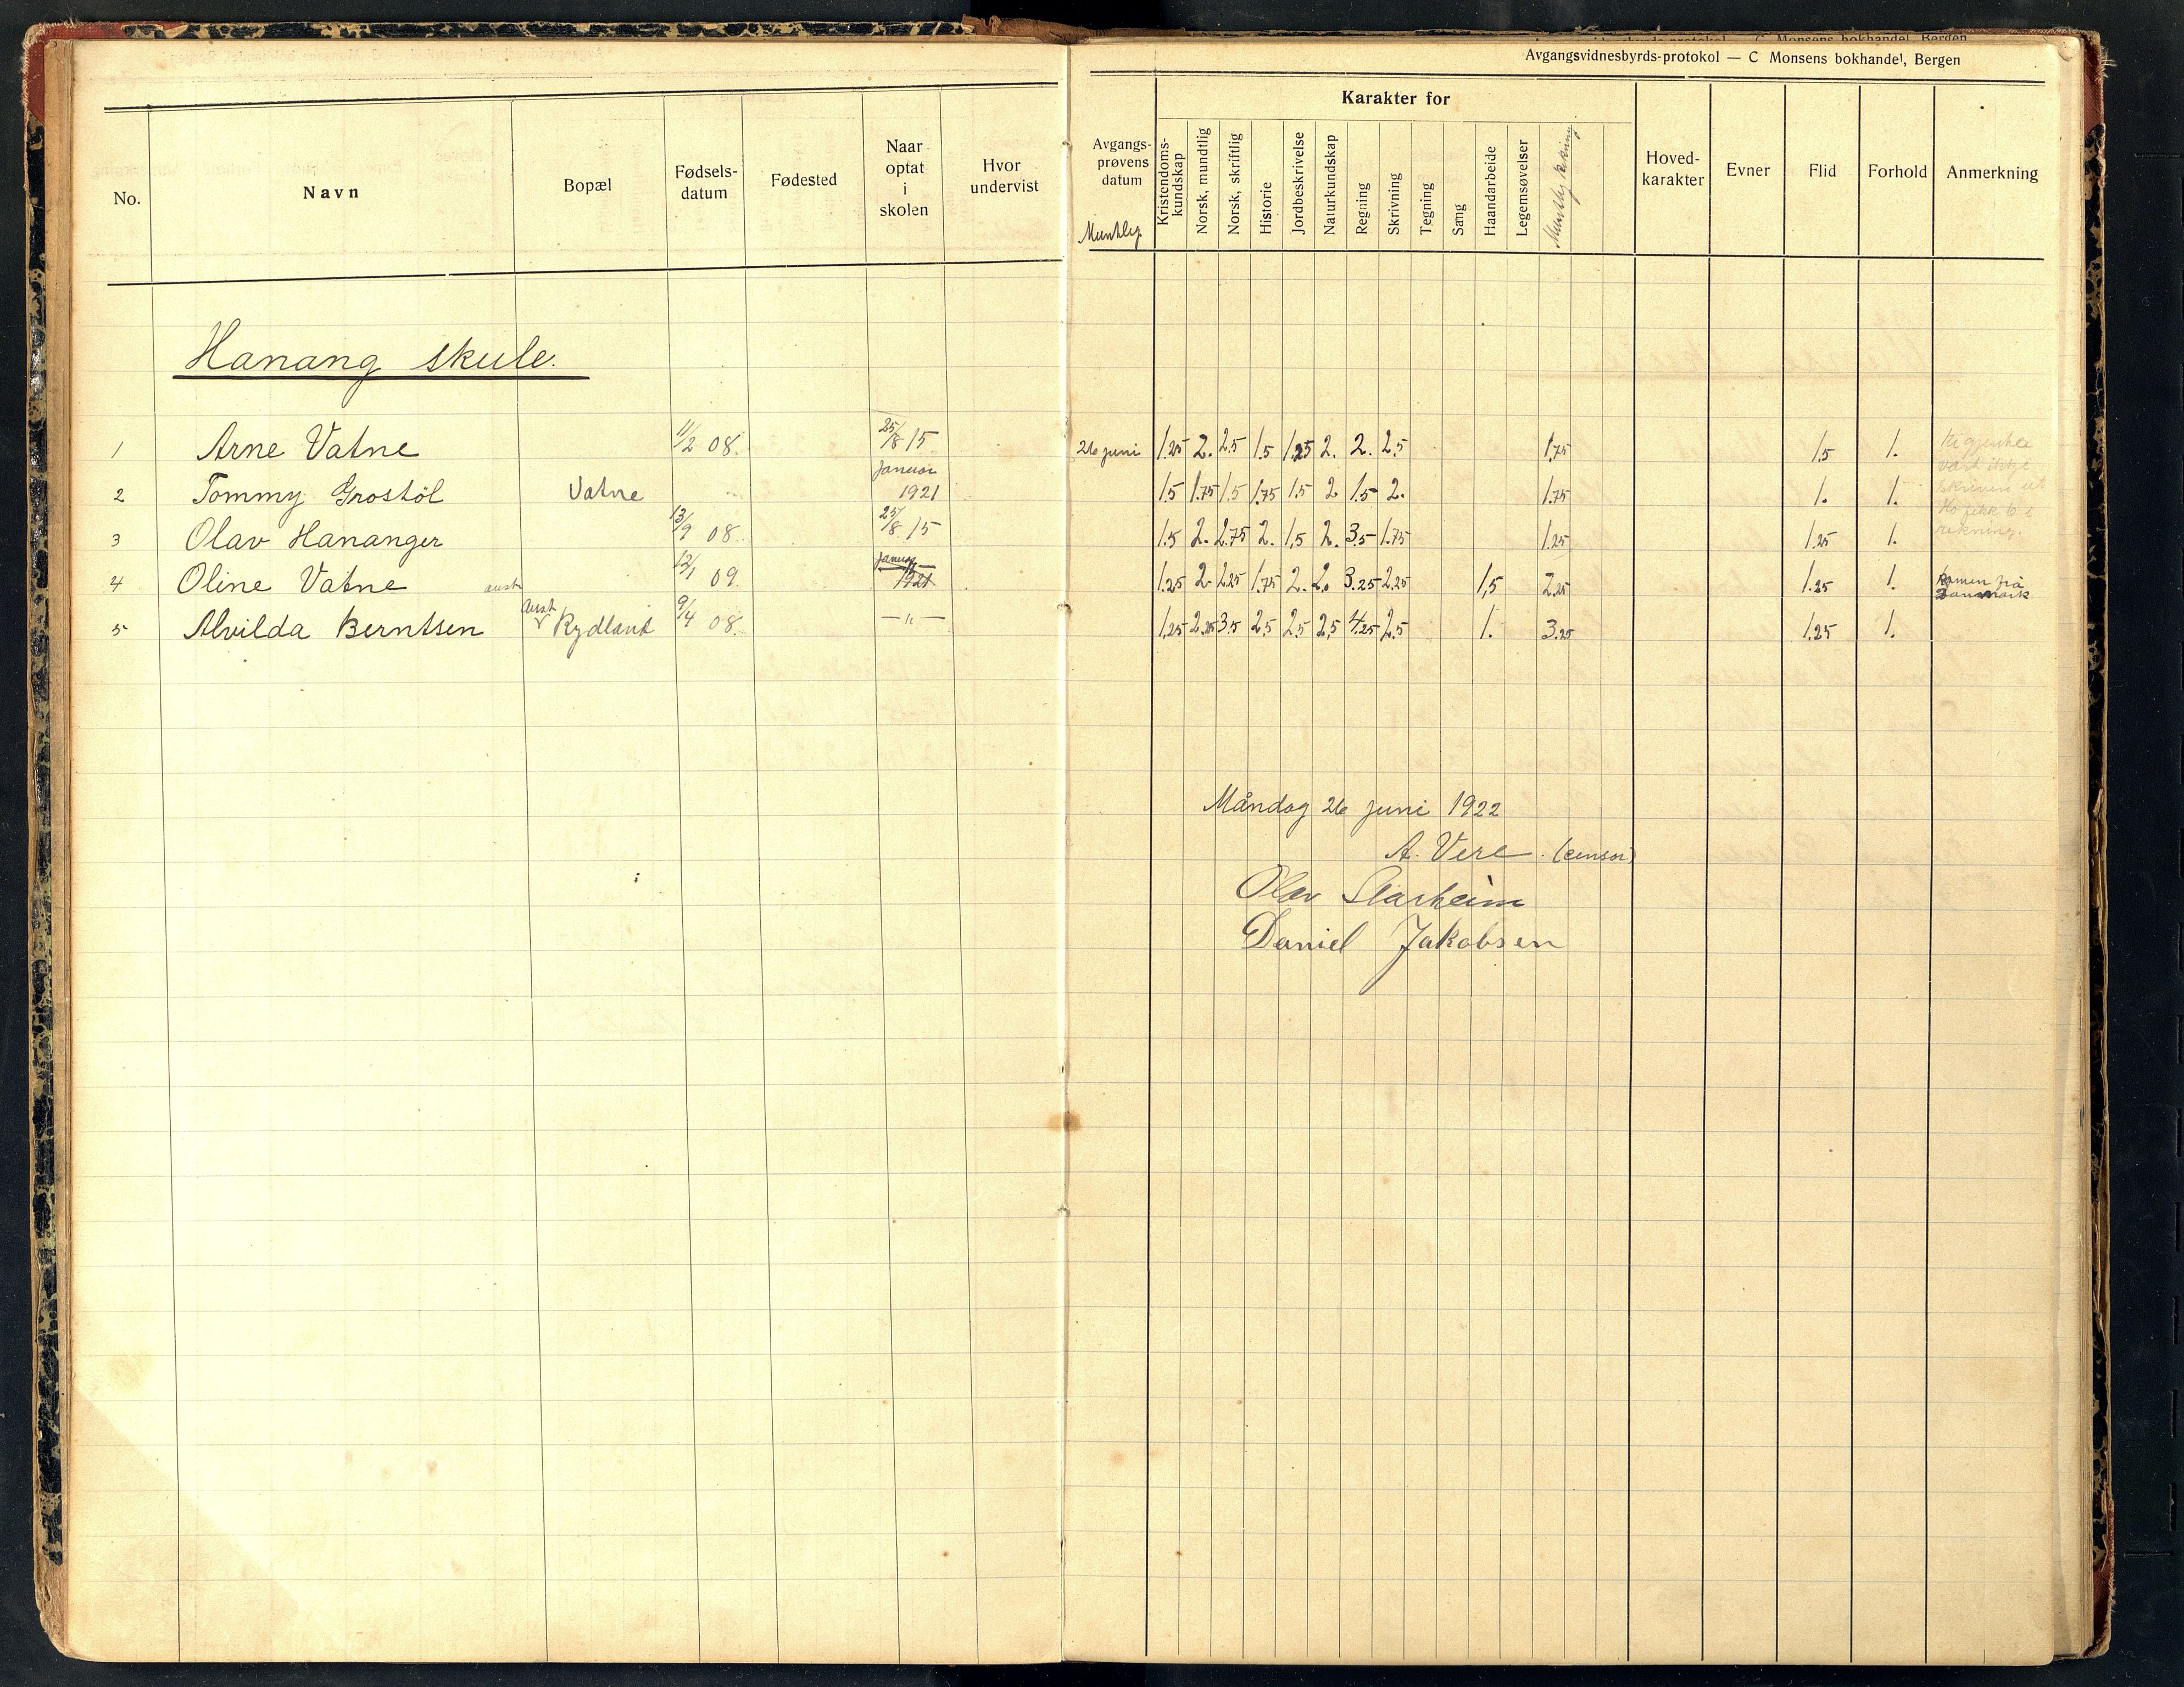 Avgangsvidnesbyrds-protokol — C Monsens bokhandel, Bergen
No. Navn Bopæl Fødsels-datum Fødested Naar optat i skolen Hvor undervist
Avgangs-prøvens datum Karakter for Hoved-karakter Evner Flid Forhold Anmerkning
Muntleg.
Kristendoms-kundskap Norsk, mundtlig Norsk, skriftlig Historie Jordbeskrivelse Naturkundskap Regning Skrivning Tegning Sang Haandarbeide Legemsøvelser Muntleg rekning
Hanang skule.
1 Arne Vatne 11/2 08. 25/8 15 26 juni 1.25 2. 2.5 1.5 1.25 2. 2. 2.5 1.75 1.5 1.
2 Tommy Grostöl Vatne Januar 1921 1.5 1.75 1.5 1.75 1.5 2 1.5 2. 1.75 1. 1.
3 Olav Hananger 13/9 08. 25/8 15 1.5 2. 2.75 2. 1,5 2. 3.5 1.75 1.25 1.25 1.
4 Oline Vatne aust 09. Januar 1921 1.25 2 2.25 1.75 2. 2. 3.25 2.25 1,5 2.25 1.25 1. Komen frå Danmark
5 Alvilda Berntsen Aust Rydland 9/4 08. —"— 1,25 2.25 3.5 2,5 2,5 2,5 4.25 2.5 1. 3.25 1.25 1.
vart ikkje
skriven ut
rekning.
Måndag 26 juni 1922
A. Vere. (censor)
Olav Starheim
Daniel Jakobsen